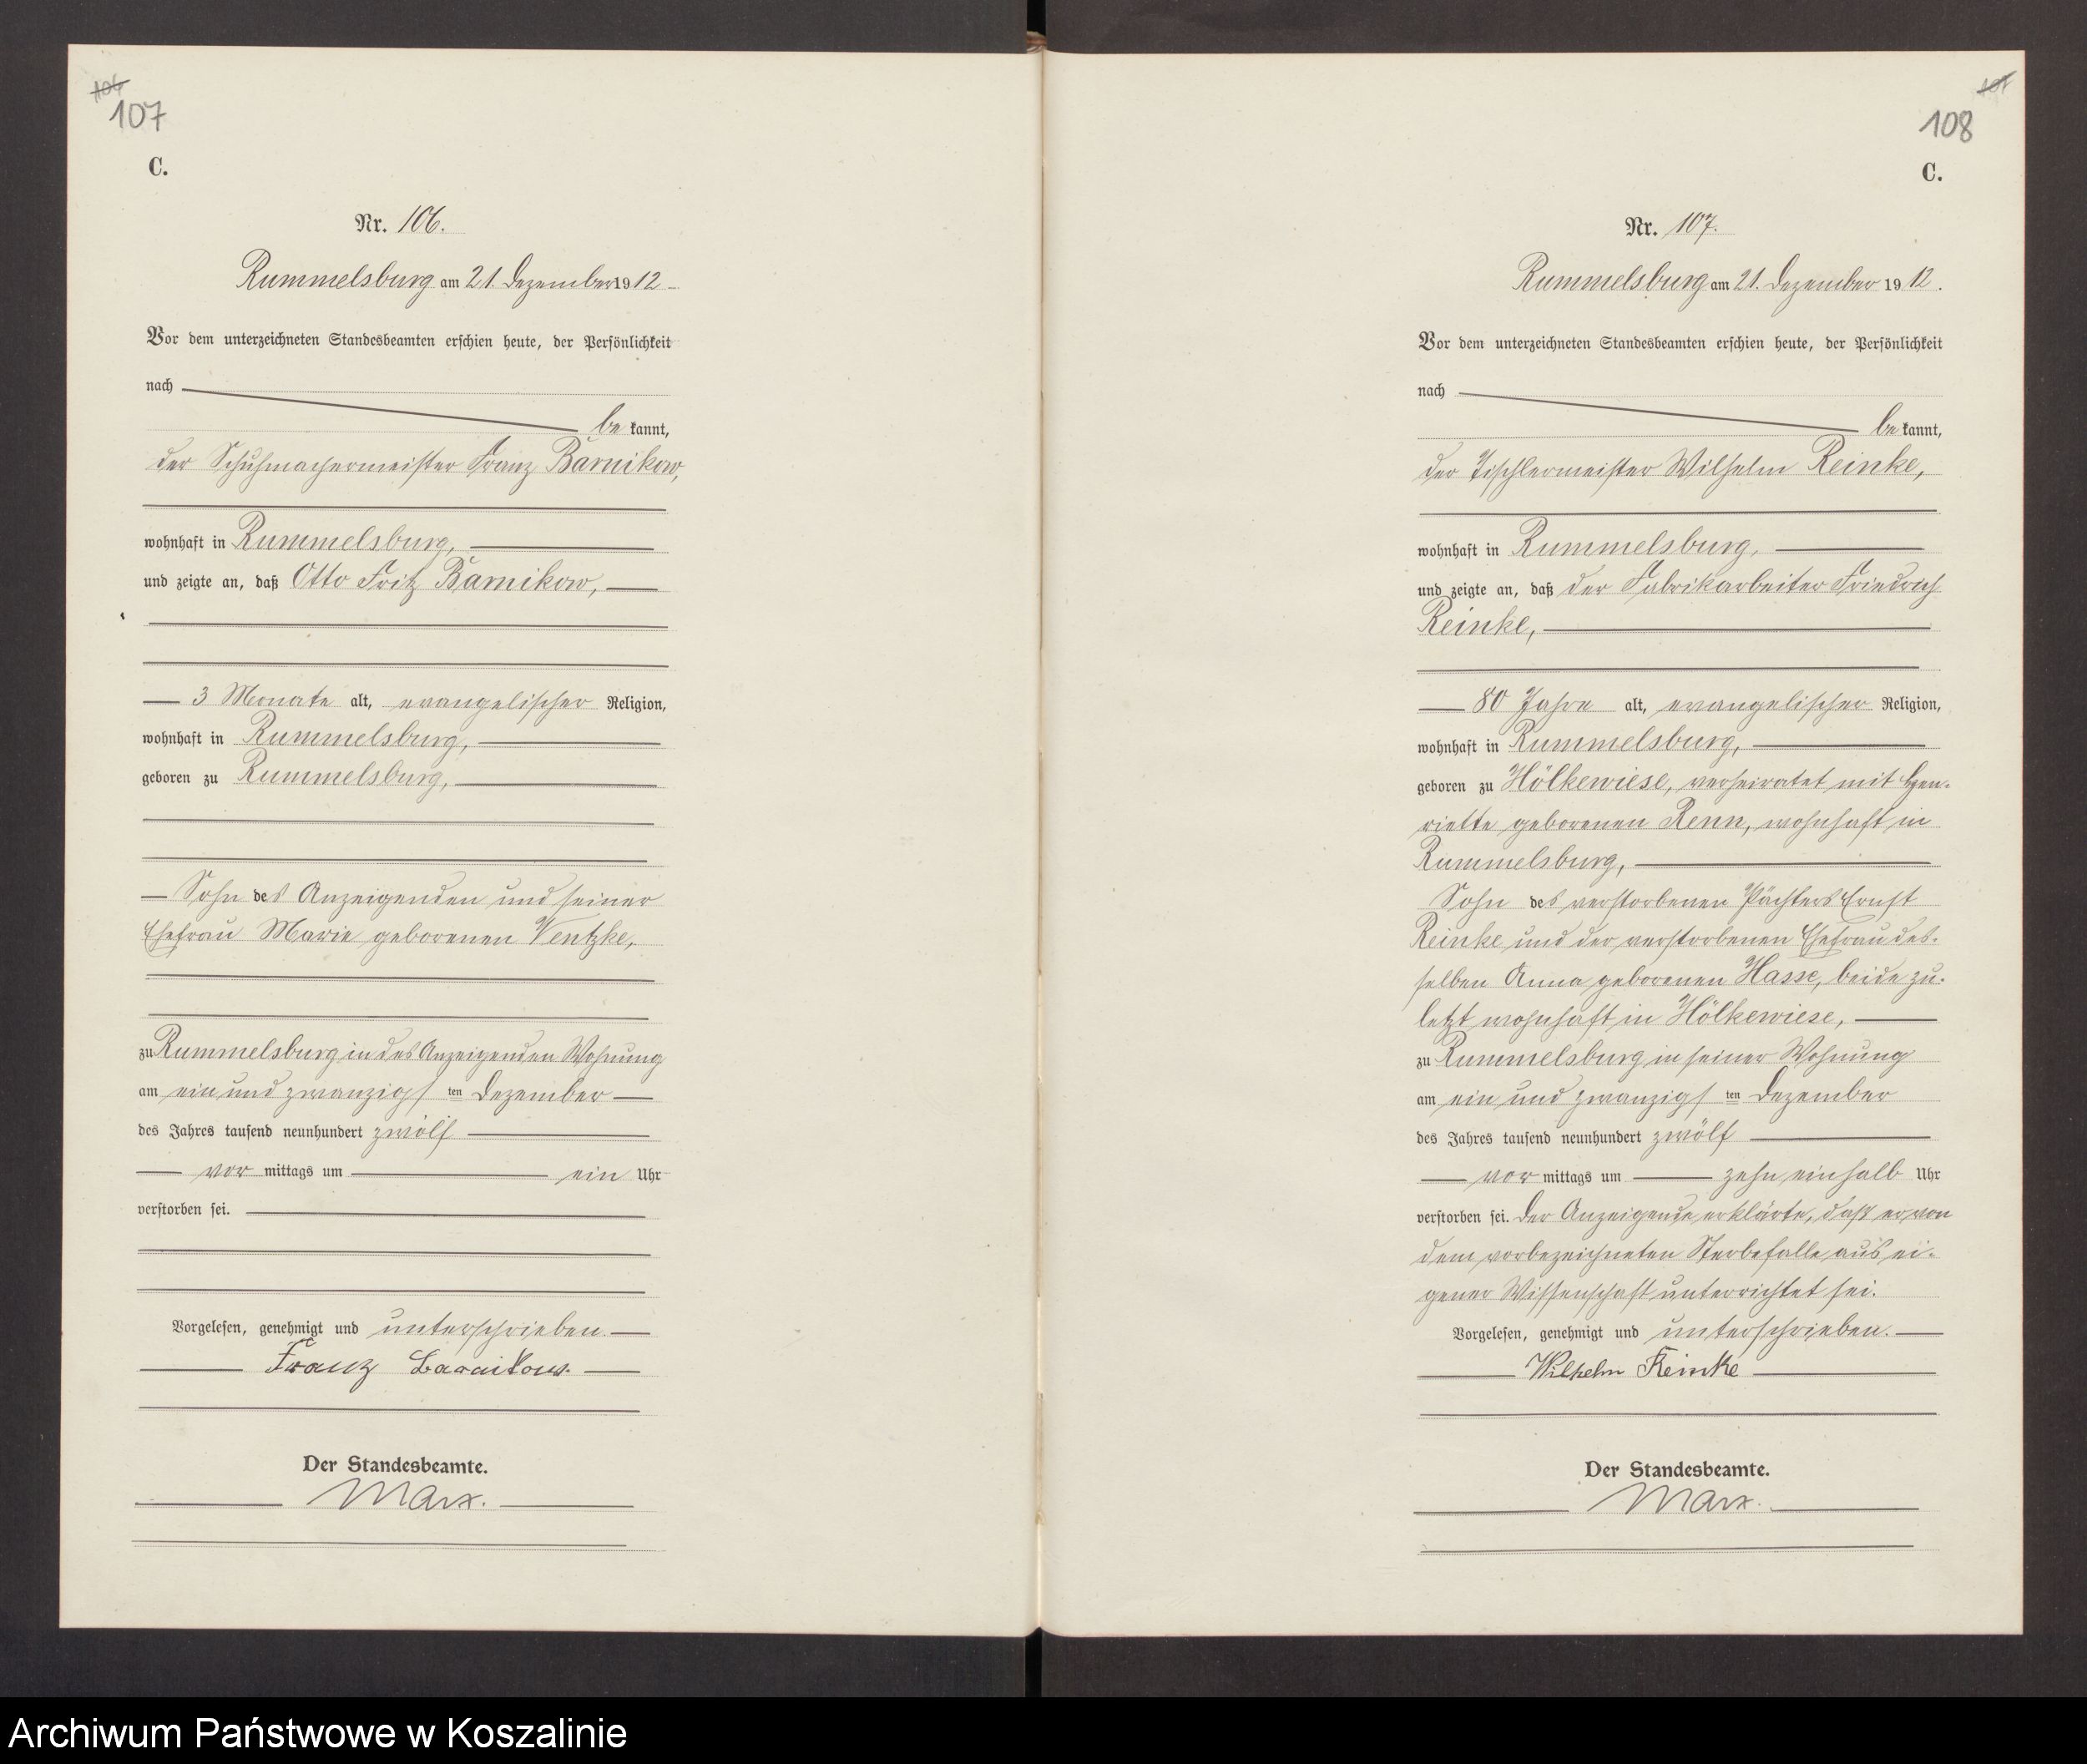 107
C.
Nr. 106.
Rummelsburg am 21. Dezember 1912
Vor dem unterzeichneten Standesbeamten erschien heute, der Persönlichkeit
nach
be kannt,
der Schuhmachermeister Franz Barnikow,
wohnhaft in Rummelsburg,
und zeigte an, daß Otto Fritz Barnikow,
3 Monate alt, evangelischer Religion,
wohnhaft in Rummelsburg,
geboren zu Rummelsburg,
Sohn des Anzeigenden und seiner
Ehefrau Marie geborenen Ventzke,
zu Rummelsburg in des Anzeigenden Wohnung
am ein und zwanzigs ten Dezember
des Jahres tausend neunhundert zwölf
vor mittags um ein Uhr
verstorben sei.
Vorgelesen, genehmigt und unterschrieben.
Franz Barnikow.
Der Standesbeamte.
Marx.
108
C.
Nr. 107.
Rummelsburg am 21. Dezember 1912.
Vor dem unterzeichneten Standesbeamten erschien heute, der Persönlichkeit
nach
be kannt,
der Tischlermeister Wilhelm Reinke,
wohnhaft in Rummelsburg,
und zeigte an, daß der Fabrikarbeiter Friedrich
Reinke,
80 Jahre alt, evangelischer Religion,
wohnhaft in Rummelsburg,
geboren zu Hölkewiese, verheiratet mit Hen-
riette geborenen Renn, wohnhaft in
Rummelsburg,
Sohn des verstorbenen Pächters Ernst
Reinke und der verstorbenen Ehefrau des-
selben Anna geborenen Hasse, beide zu-
letzt wohnhaft in Hölkewiese,
zu Rummelsburg in seiner Wohnung
am ein und zwanzigs ten Dezember
des Jahres tausend neunhundert zwölf
vor mittags um zehn einhalb Uhr
verstorben sei. Der Anzeigende erklärte, daß er von
dem vorbezeichneten Sterbefalle aus ei-
gener Wissenschaft unterrichtet sei.
Vorgelesen, genehmigt und unterschrieben.
Wilhelm Reinke
Der Standesbeamte.
Marx.
Archiwum Państwowe w Koszalinie